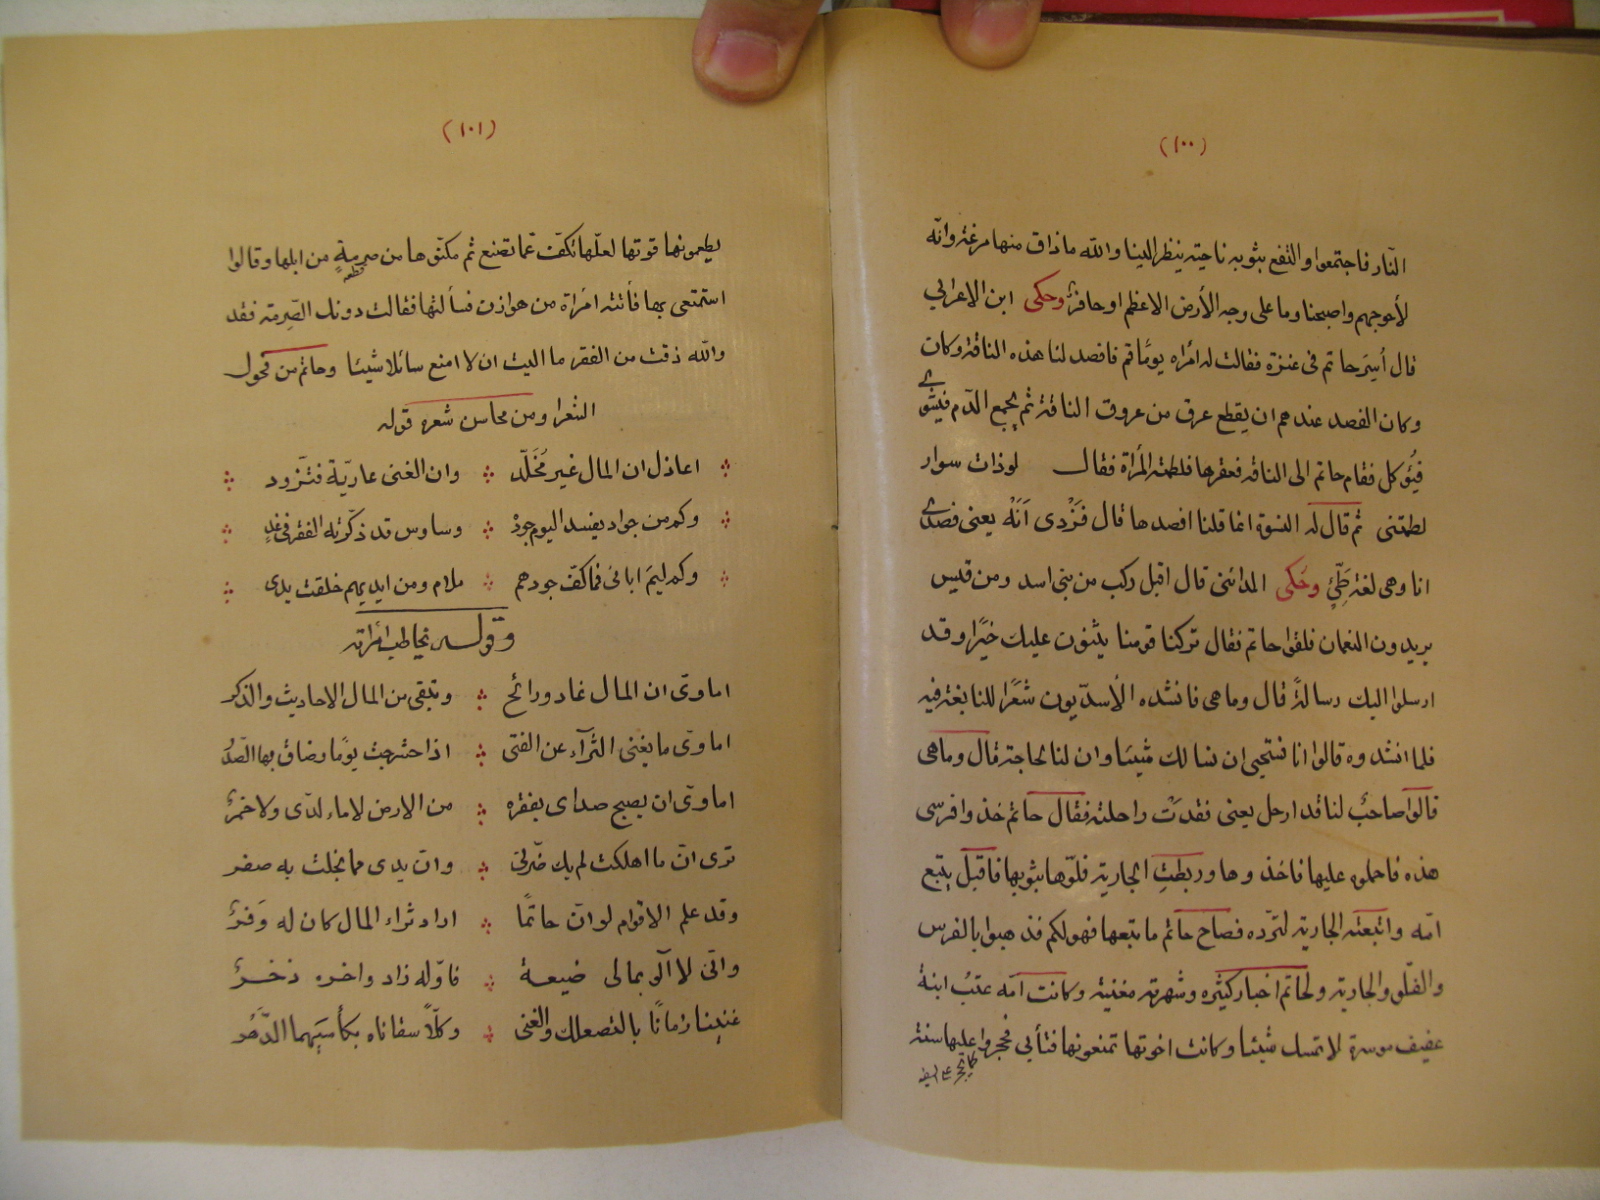 (١٠٠)
النّار فاجتمعوا والتفع بثوبه ناحيته ينظر الينا والله ما ذاق منها مزغة وانّه
لأحوجهم واصبحنا وما على وجه الأرض الا عظم او حافرٌ وحكى ابن الاعرابي
قال أُسِرَ حاتم فى عنزة فقالت له امراه يومًا قم فافصد لنا هذه الناقة وكان
وكان الفصد عندهم ان يقطع عرق من عروق الناقة ثم يجمع الدّم فيشوى
فيُؤكل فقام حاتم الى الناقه فعقرها فلطمته المرأة فقال لو ذات سوار
لطمتنى ثم قال له النسوة انما قلنا افصدها قال فَزْدى أَنَهْ يعنى فصدى
انا وهى لغة طَيّئٍ وحَكى المدائنى قال اقبل ركب من بنى اسد ومن قيس
يريدون النعمان فلقوا حاتم فقال تركنا قومنا يثنون عليك خيرًا وقد
ارسلوا اليك رسالةً قال وما هى فانشده الأسديّون شعرًا للنابغة فيه
فلما انشدوه قالوا انا نستحيى ان نسالك شيئا وان لنا لحاجة قال وما هى
قالوا صاحبٌ لنا قد ارحل يعنى فقدت راحلته فقال حاتم خذوا فرسى
هذه فاحملوه عليها فاخذوها وربطتِ الجارية فلوّها بثوبها فاقبل يتبع
امّه واتبعته الجارية لتردّه فصاح حاتم ما تبعها فهو لكم فذهبوا بالفرس
والفلو والجارية ولحاتم اخبار كثيره وشهرته مغنية وكانت امّه عتبُ ابنة
عفيف موسرة لا تمسك شيئا وكانت اخوتها تمنعونها فتأبى فحجروا عليها سنة
(١٠١)
يطعمونها قوتها لعلّها تكفّ عمّا تصنع ثم مكّنوها من صرمةٍ من ابلها وقالوا
قطعة
استمتعى بها فأتته امرأة من هوازن فسألتها فقالت دونك الصّرمة فقد
والله ذقت من الفقر ما اليت ان لا امنع سائلا شيئا وحاتم من فحول
الشعرا ومن محاسن شعره قوله
اعاذل ان المال غير مُخَلّد وان الغنى عاريّة فتزوّد
وكم من جواد يفسد اليوم جودَ وساوس قد ذكّرنه الفقر فى غدٍ
وكم ليمَ ابائى فما كفّ جودهم ملام ومن ايديهم خلقت يدى
وقوله يخاطب امرأته
اماوىّ ان المال غاد ورائح وتبقى من المال الاحاديث والذكر
اماوىّ ما يغنى الثرآء عن الفتى اذا حشرجت يومًا وضاق بها الصّدُ
اماوىّ ان يصبح صداى بقفره من الارض لا ماء لدّى ولا خمرٌ
ترى انّ ما اهلكت لم يك ضرّنى وانّ يدى مما بخلت به صفر
وقد علم الاقوام لو انّ حاتمًا اراد ثراء المال كان له وَفرٌ
وانّى لا آلو بمالى ضيعة فاوّله زاد واخره ذخرٌ
غنينا زمانًا بالتصعلك والغنى وكلّاً سقاناه بكأسَيهما الدّهر